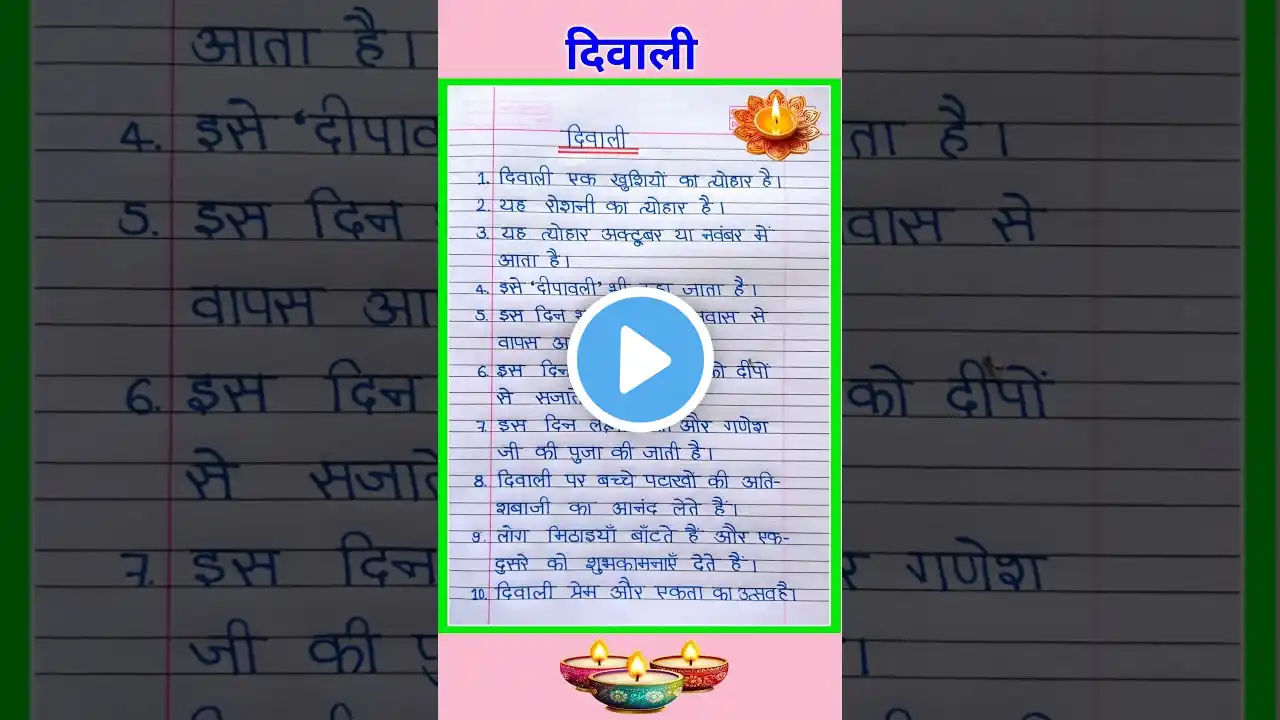 दिवाली
दिवाली
1. दिवाली एक खुशियों का त्योहार है।
2. यह रोशनी का त्योहार है।
3. यह त्योहार अक्टूबर या नवंबर में
आता है।
4. इसे 'दीपावली' जाता है।
5. इस दिन से
वापस
6. इस दिन को दीपों
से सजाते
7. इस दिन और गणेश
जी की पुजा की जाती है।
8. दिवाली पर बच्चे पटाखों की अति-
शबाजी का आनंद लेते हैं।
9. लोग मिठाइयाँ बाँटते हैं और एक-
दुसरे को शुभकामनाएँ देते हैं।
10. दिवाली प्रेम और एकता का उत्सव है।